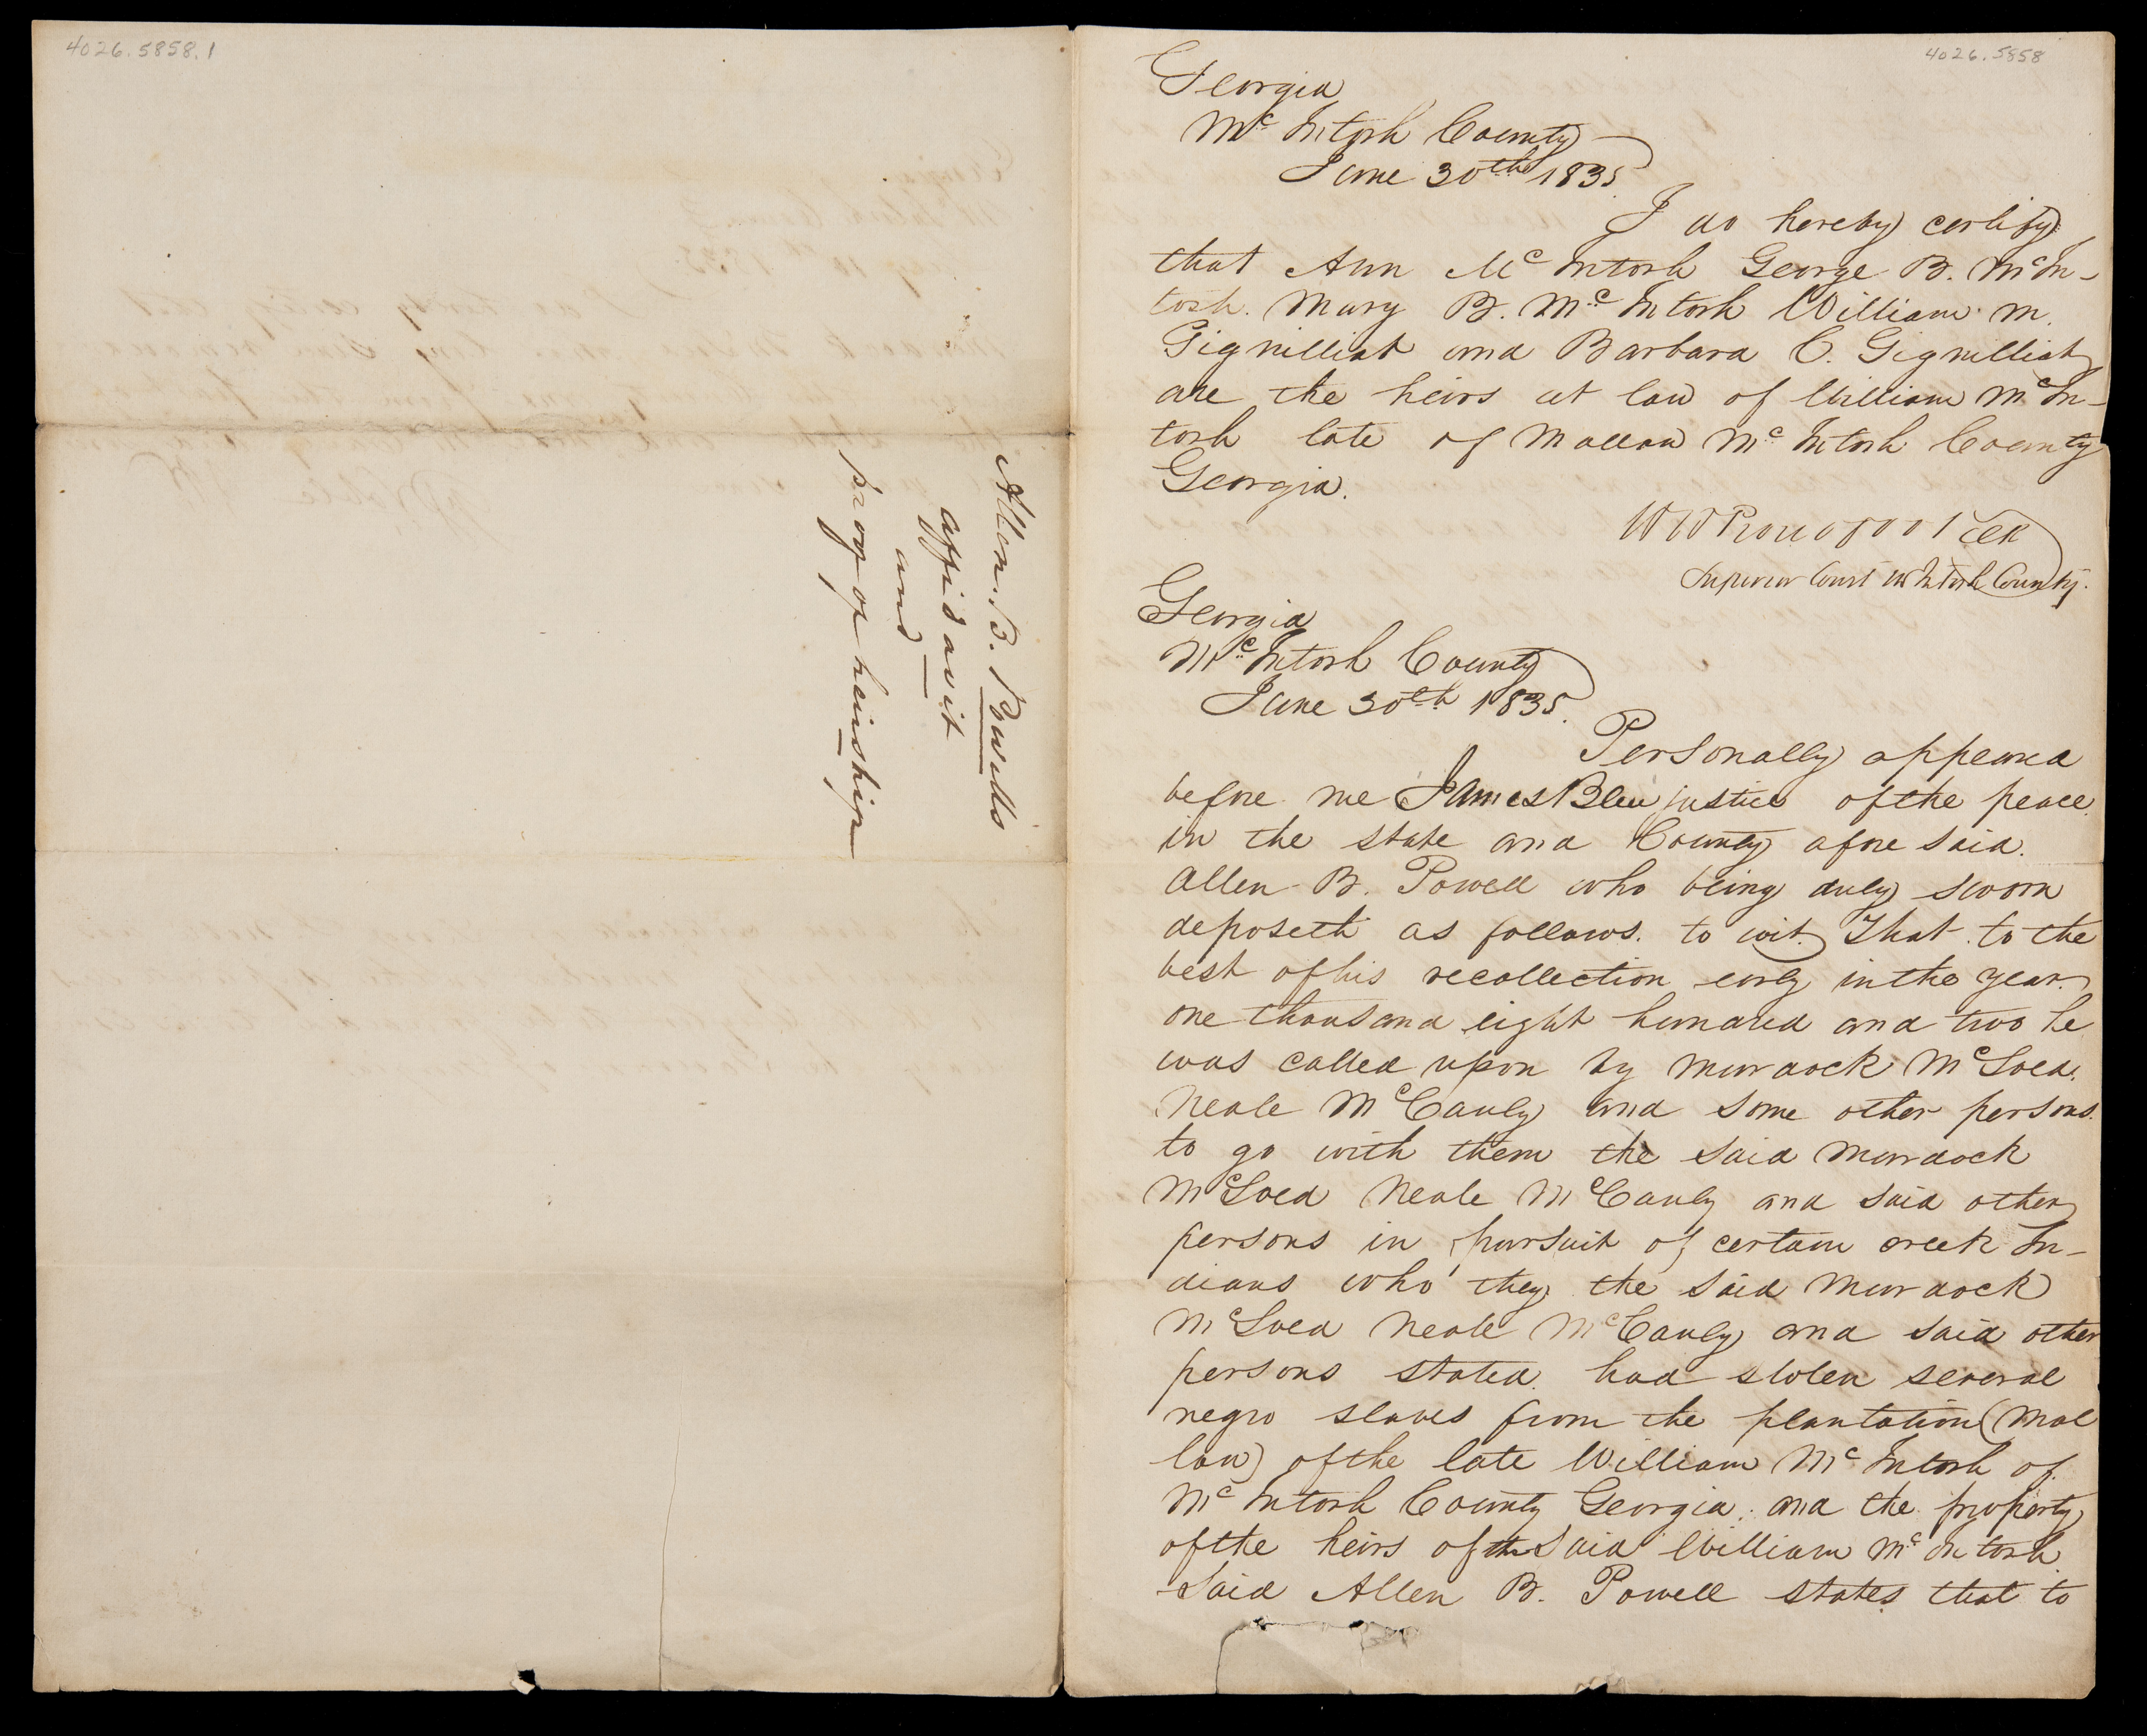 4026.5858.1
Allen. B. Powells
affidavit
and
proof of heirship
4026.5858
Georgia
Mc Intosh County
June 30th 1835
I do hereby certify
that Ann Mc Intosh George B. McIn-
tosh. Mary B. Mc Intosh William M.
Gignilliat and Barbara C. Gignilliat
are the heirs at law of William McIn-
tosh late of Mallow Mc Intosh County
Georgia.
Clk
Superior Court McIntosh County.
Georgia
Mc Intosh County
June 30th 1835.
Personally appeared
before me James Blue justice of the peace
in the state and County afore said.
Allen B. Powell who being duly sworn
deposeth as follows. to wit. That to the
best of his recollection early in the year
one thousand eight hundred and two he
was called upon by Murdock McLoed.
Neale McCauly and some other persons.
to go with them the said Murdock
McLoed Neale McCauly and said other
persons in pursuit of certain creek In-
dians who they the said Murdock
McLoed Neale McCauly and said other
persons stated had stolen several
negro slaves from the plantation (Mal
low) of the late William Mc Intosh of
Mc Intosh County Georgia. and the property
of the heirs of the said William Mc Intosh
said Allen B. Powell states that to